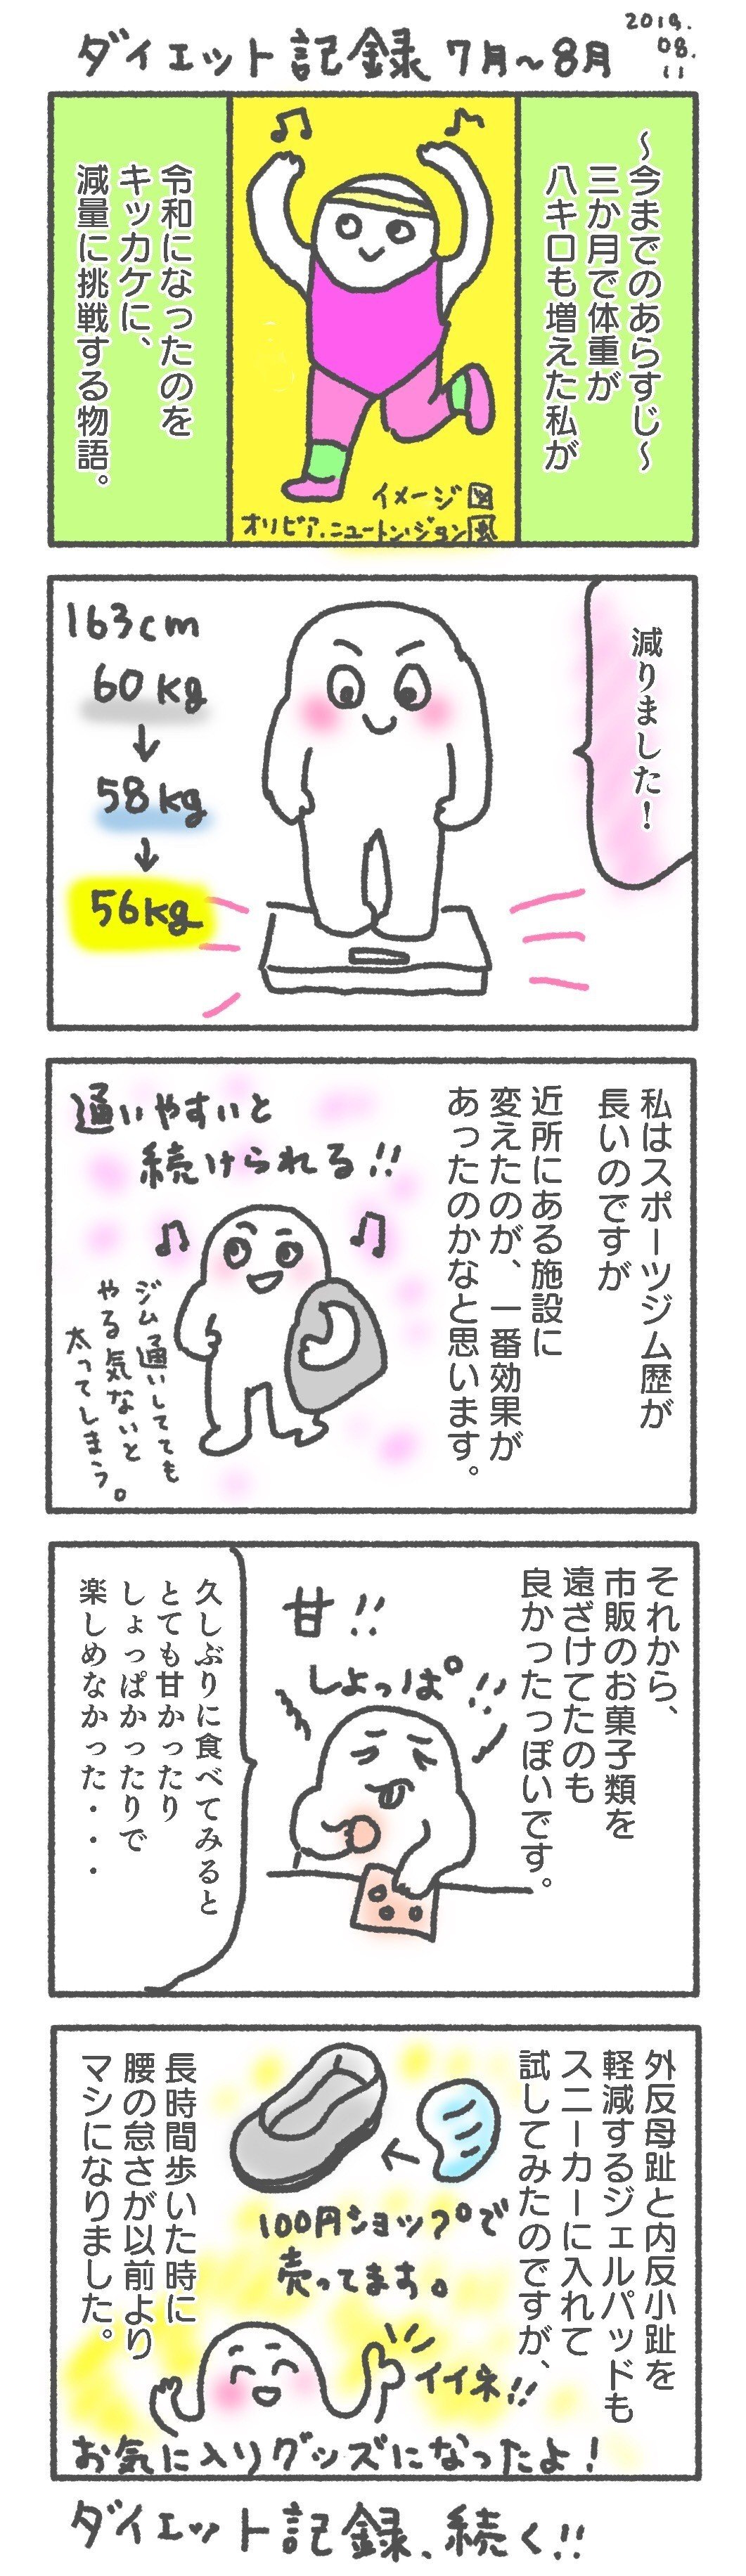 ダイエット記録 7月〜8月
2019.
08.
11
〜今までのあらすじ〜
三か月で体重が
八キロも増えた私が
イメージ図
オリビア・ニュートン・ジョン風
令和になったのを
キッカケに、
減量に挑戦する物語。
減りました！
163cm
60kg
↓
58kg
↓
56kg
私はスポーツジム歴が
長いのですが
近所にある施設に
変えたのが、一番効果が
あったのかなと思います。
通いやすいと
続けられる!!
ジム通いしてても
やる気ないと
太ってしまう。
それから、
市販のお菓子類を
遠ざけてたのも
良かったっぽいです。
甘!!
しょっぱ!!
久しぶりに食べてみると
とても甘かったり
しょっぱかったりで
楽しめなかった・・・
外反母趾と内反小趾を
軽減するジェルパッドも
スニーカーに入れて
試してみたのですが、
100円ショップで
売ってます。
長時間歩いた時に
腰の怠さが以前より
マシになりました。
イイネ!!
お気に入りグッズになったよ!
ダイエット記録、続く!!